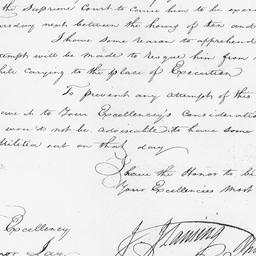 the Supreme Court to cause him to be exe
ursday next between the hours of ten and
I have some reason to apprehend
ttempt will be made to rescue him from
hile carrying to the place of Execution
To prevent any attempts of this
ave it to Your Excellency's Consideratio
wou'd not be adviseable to have some
Militia out on that day
I have the Honor to be
Your Excellencies Most
Excellency
nor Jay
J Fleming